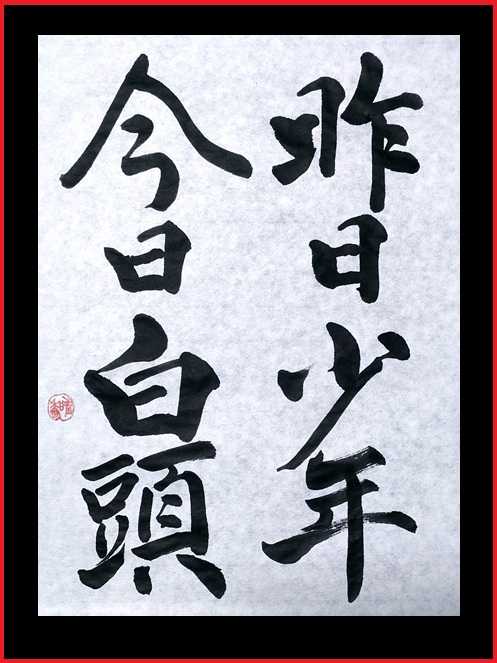 昨日少年
今日白頭